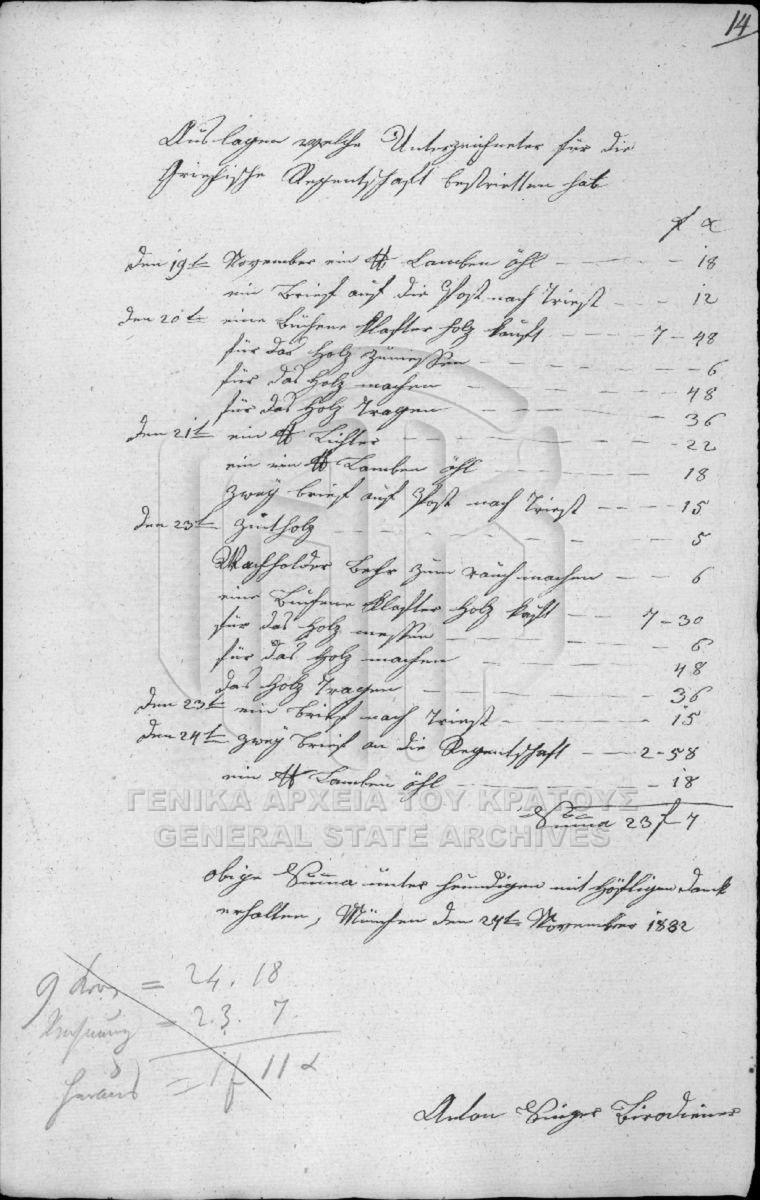 14
Auslagen welche Unterzeichneter für die
Griechische Regentschaft bestrietten hat
f x
den 19t November ein ℔ Lamben öhl — 18
ein Brief auf die Post nach Triest — 12
den 20t eine Büchene Klafter Holz kauft — 7 – 48
für das Holz zumessen — 6
für das Holz machen — 48
für das Holz Tragen — 36
den 21t ein ℔ Lichter — 22
ein ℔ Lamben öhl — 18
zwey brief auf Post nach Triest — 15
den 23t Züntholz — 5
Wachholder Behr zum räuchmachen — 6
eine Büchene Klafter Holz kauft — 7 – 30
für das Holz messen — 6
für das Holz machen — 48
das Holz Tragen — 36
den 23t ein Brief nach Triest — 15
den 24t zwey Brief an die Regentschaft — 2 – 58
ein ℔ Lamben öhl — 18
Suma 23 f 7
ΓΕΝΙΚΑ ΑΡΧΕΙΑ ΤΟΥ ΚΡΑΤΟΥΣ
GENERAL STATE ARCHIVES
obige Suma unter heundigen mit höfligen Danck
erhalten, München den 24t November 1832
9 = 24. 18
Rechnung = 23. 7
heraus = 1 f 11 x
Anton Singer Birodiener